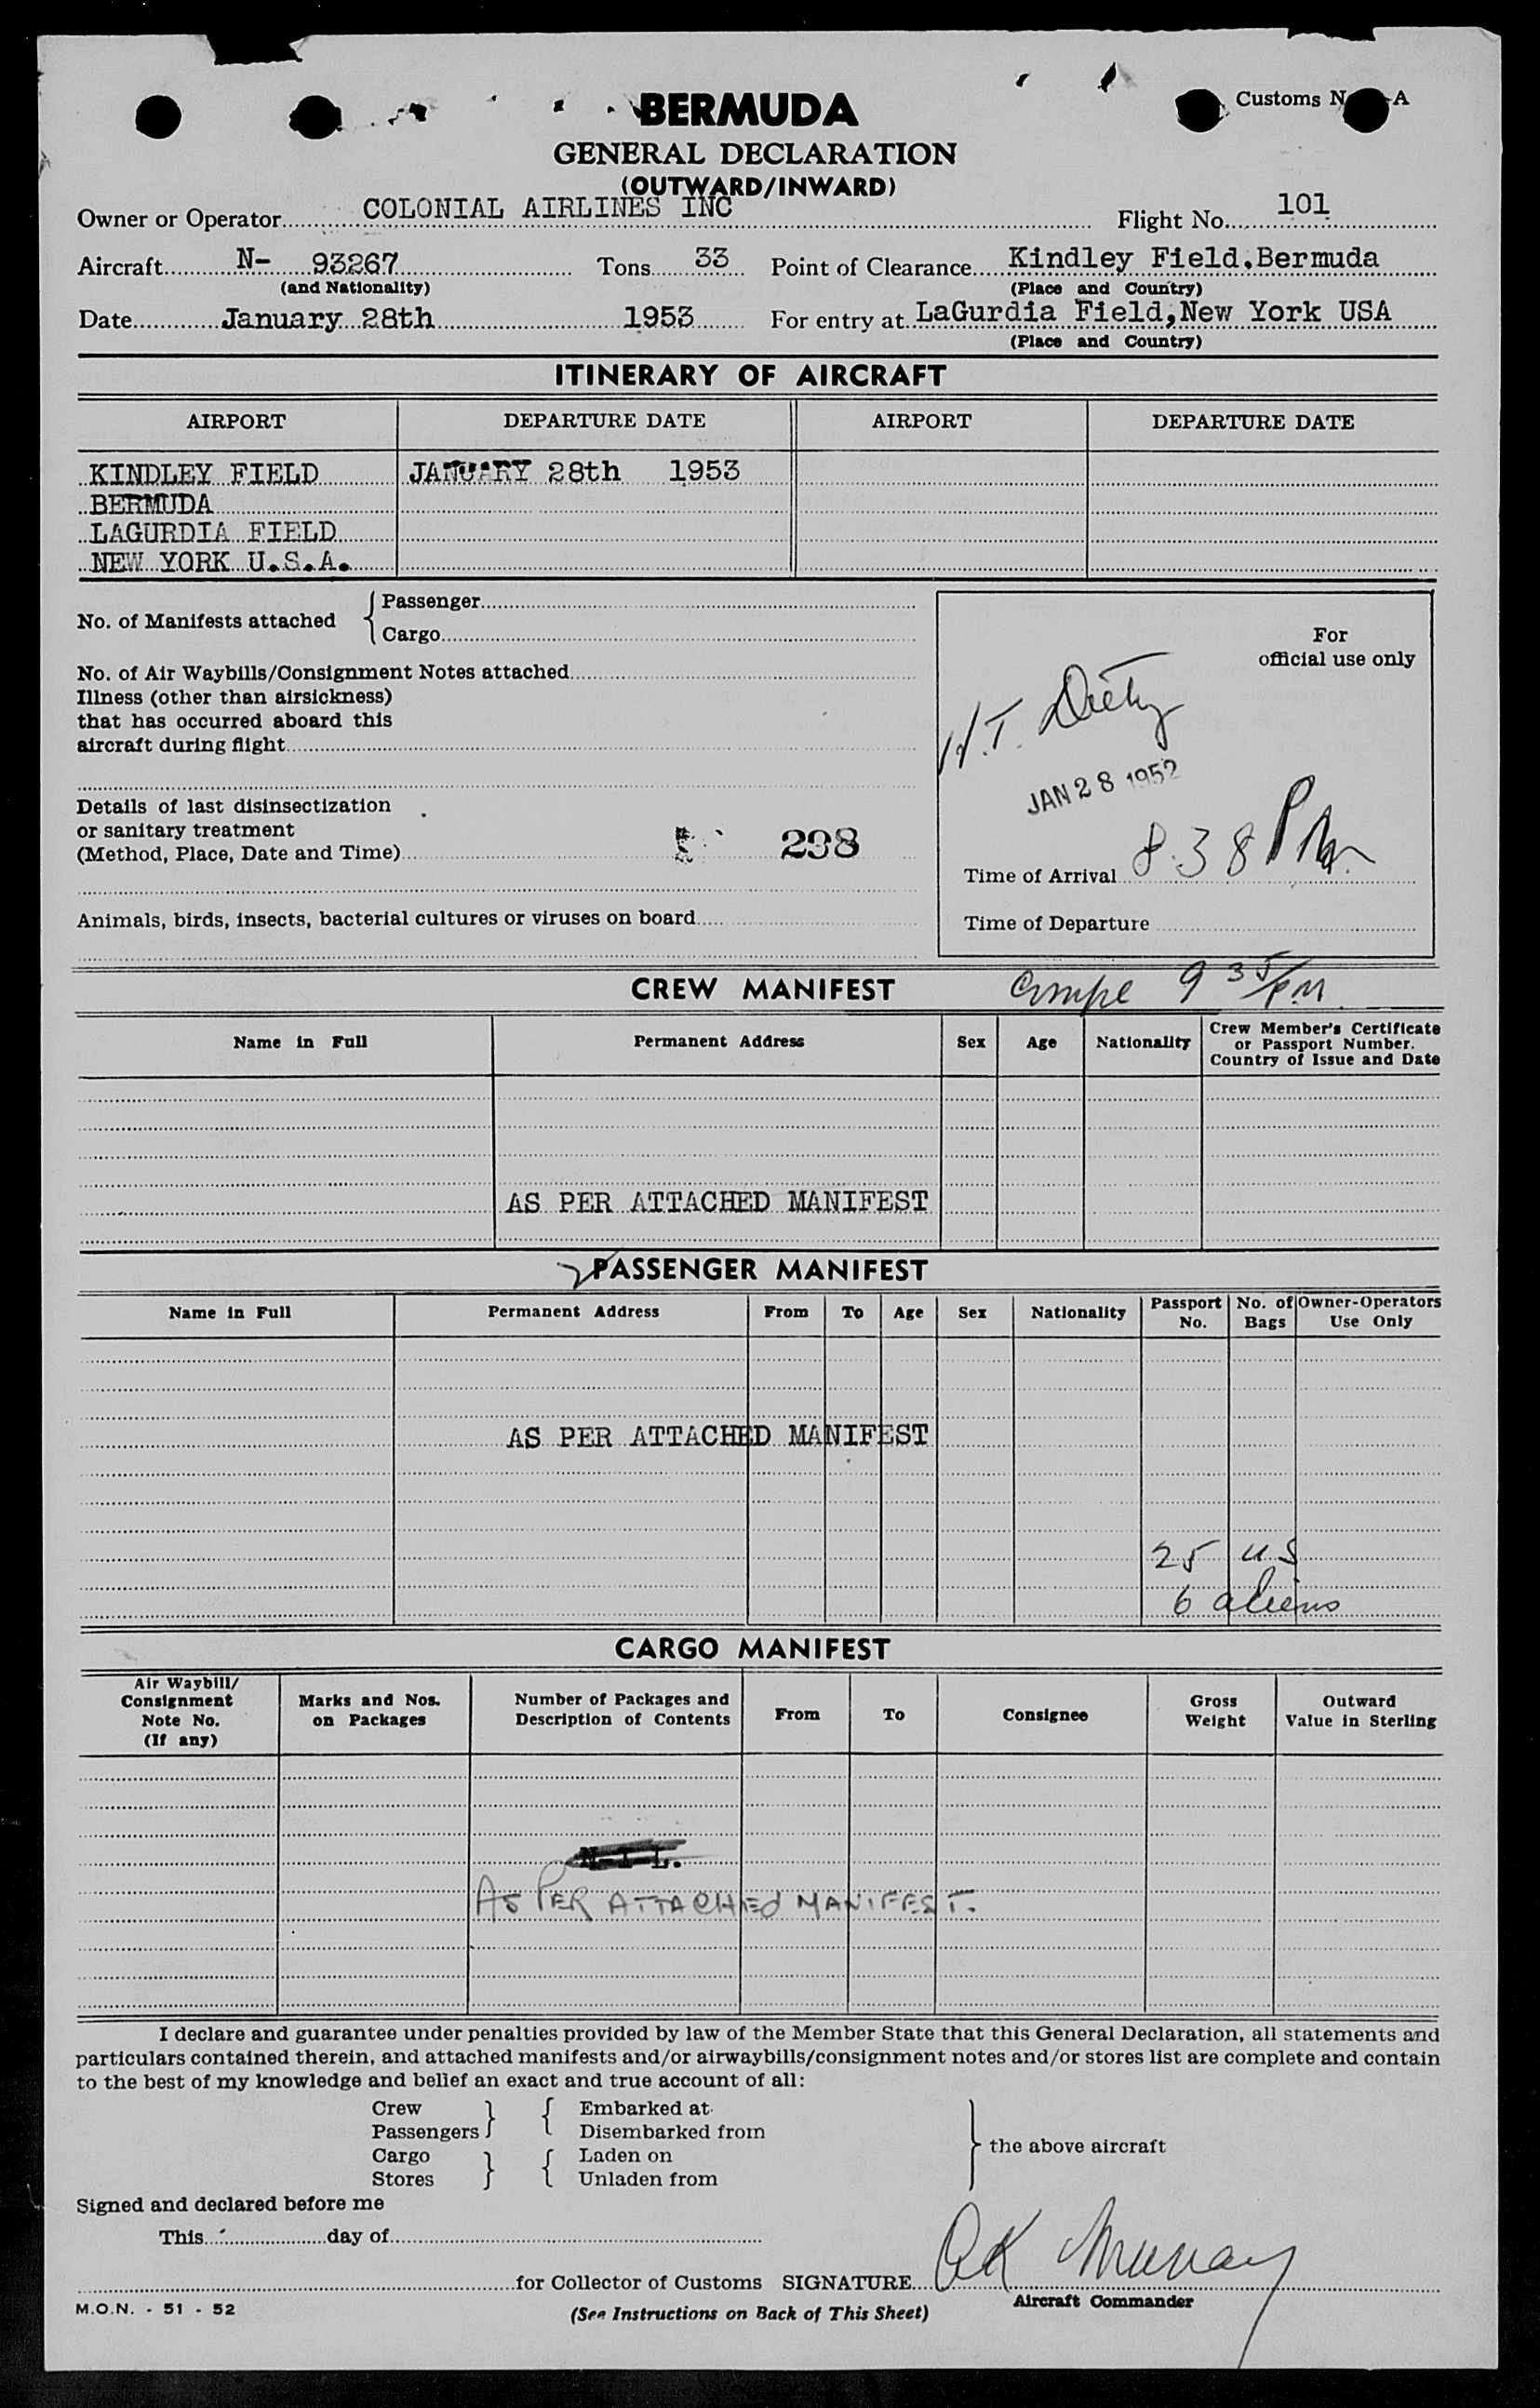 BERMUDA
Customs N A
GENERAL DECLARATION
(OUTWARD/INWARD)
Owner or Operator COLONIAL AIRLINES INC Flight No. 101
Aircraft N- 93267 Tons 33 Point of Clearance Kindley Field,Bermuda
(and Nationality) (Place and Country)
Date January 28th 1953 For entry at LaGurdia Field,New York USA
(Place and Country)
ITINERARY OF AIRCRAFT
AIRPORT DEPARTURE DATE AIRPORT DEPARTURE DATE
KINDLEY FIELD JANUARY 28th 1953
BERMUDA
LAGURDIA FIELD
NEW YORK U.S.A.
No. of Manifests attached { Passenger
Cargo
No. of Air Waybills/Consignment Notes attached
Illness (other than airsickness)
that has occurred aboard this
aircraft during flight
Details of last disinsectization
or sanitary treatment
(Method, Place, Date and Time) 298
Animals, birds, insects, bacterial cultures or viruses on board
For
official use only
JAN 28 1952
Time of Arrival 8.38 PM
Time of Departure
CREW MANIFEST 9 35/PM
Name in Full Permanent Address Sex Age Nationality Crew Member's Certificate
or Passport Number.
Country of Issue and Date
AS PER ATTACHED MANIFEST
PASSENGER MANIFEST
Name in Full Permanent Address From To Age Sex Nationality Passport No. No. of Bags Owner-Operators Use Only
AS PER ATTACHED MANIFEST
25 U S
6 aliens
CARGO MANIFEST
Air Waybill/
Consignment
Note No.
(If any)
Marks and Nos.
on Packages
Number of Packages and
Description of Contents
From To Consignee
Gross
Weight
Outward
Value in Sterling
N-I-L.
AS PER ATTACHED MANIFEST.
I declare and guarantee under penalties provided by law of the Member State that this General Declaration, all statements and
particulars contained therein, and attached manifests and/or airwaybills/consignment notes and/or stores list are complete and contain
to the best of my knowledge and belief an exact and true account of all:
Crew } { Embarked at
Passengers Disembarked from
Cargo } { Laden on
Stores Unladen from
} the above aircraft
Signed and declared before me
This day of
for Collector of Customs SIGNATURE Murray
Aircraft Commander
M.O.N. - 51 - 52
(See Instructions on Back of This Sheet)